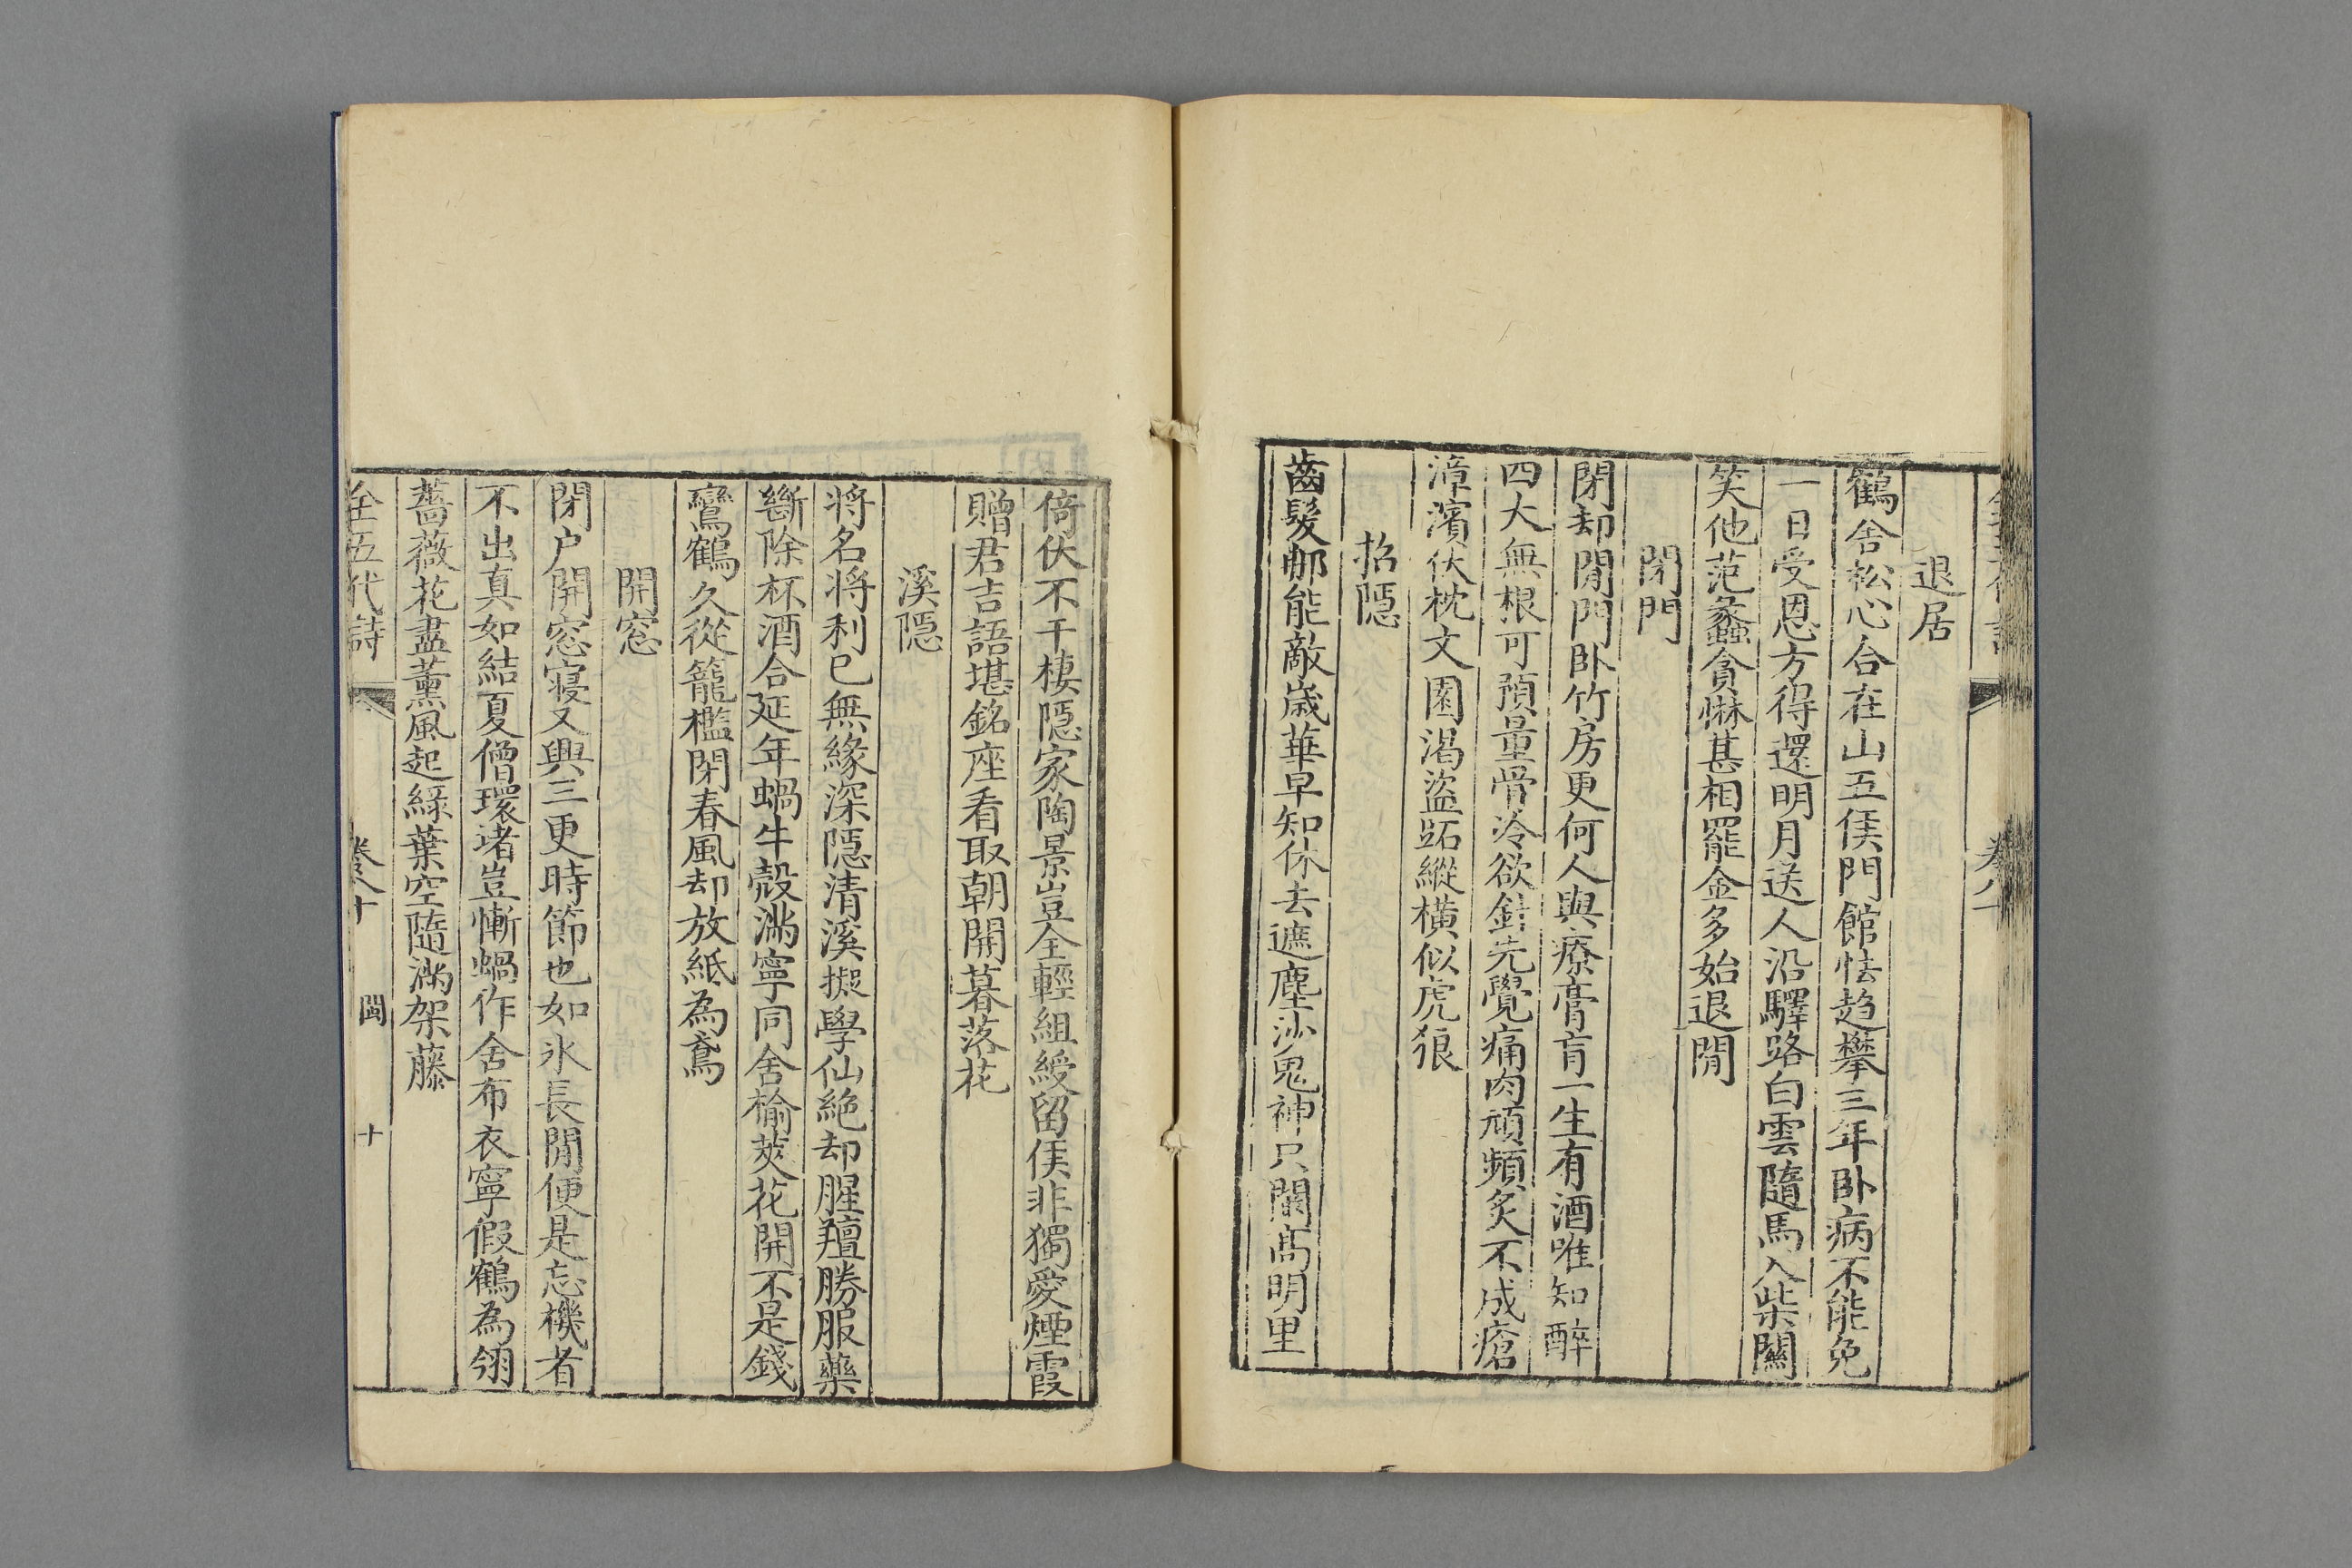 退居
鶴舍松心合在山五侯門館怯趋攀三年卧病不能免
一日受恩方得還明月送人沿驛路白雲隨馬入柴關
笑他范蠡貪惏甚相罷金多始退閒
閉門
閉却閒門卧竹房更何人與療膏肓一生有酒唯知醉
四大無根可預量骨冷欲鍼先覺痛肉頑頻炙不成瘡
漳濱伏枕文園渴盜跖縱橫似虎狼
招隱
齒髮那能敵歲華早知休去遮塵沙鬼神只闞高明里
倚伏不干棲隱家陶景豈全輕組綬留侯非獨愛煙霞
贈君吉語堪銘座看取朝開暮落花
溪隱
将名将利已無緣深隱清溪擬學仙絶却腥羶勝服藥
斷除杯酒合延年蝸牛殻滿寧同舍榆莢花開不是錢
鸞鶴久從籠檻閉春風却放紙為鳶
開窓
閉户開窓寝又興三更時節也如氷長閒便是忘機者
不出真如結夏僧環堵豈慚蝸作舍布衣寧假鶴為翎
薔薇花盡薰風起綠葉空隨滿架藤
全五代詩 卷八十 閩 十